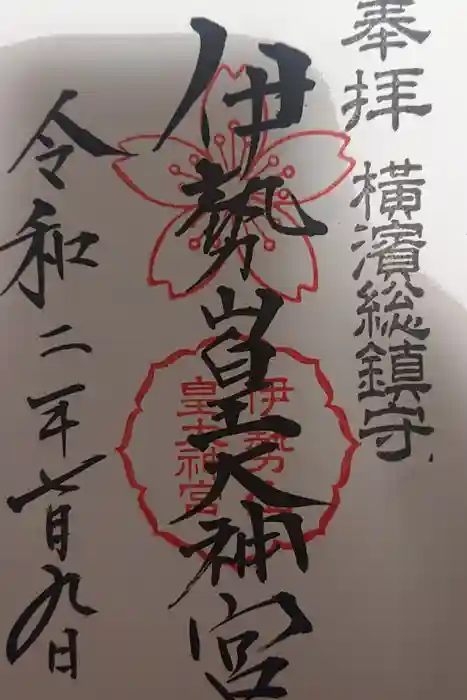 奉拝 横濱総鎮守
伊勢山皇大神宮
伊勢山
皇大神宮
令和二年七月九日